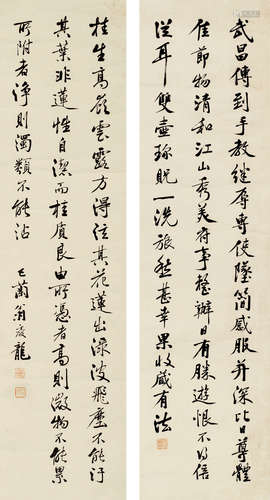 武昌傳到手教繼辱專使墜簡感服并深比日尊體
佳節物清和江山秀美府事整辦日有勝遊恨不得倍
從耳雙壺珍貺一洗旅愁甚幸果收藏有法
桂生高嶺雲露方得泫其花蓮出淥波飛塵不能汙
其葉非蓮性自潔而桂質良由所憑者高則微物不能累
所附者淨則濁類不能沾